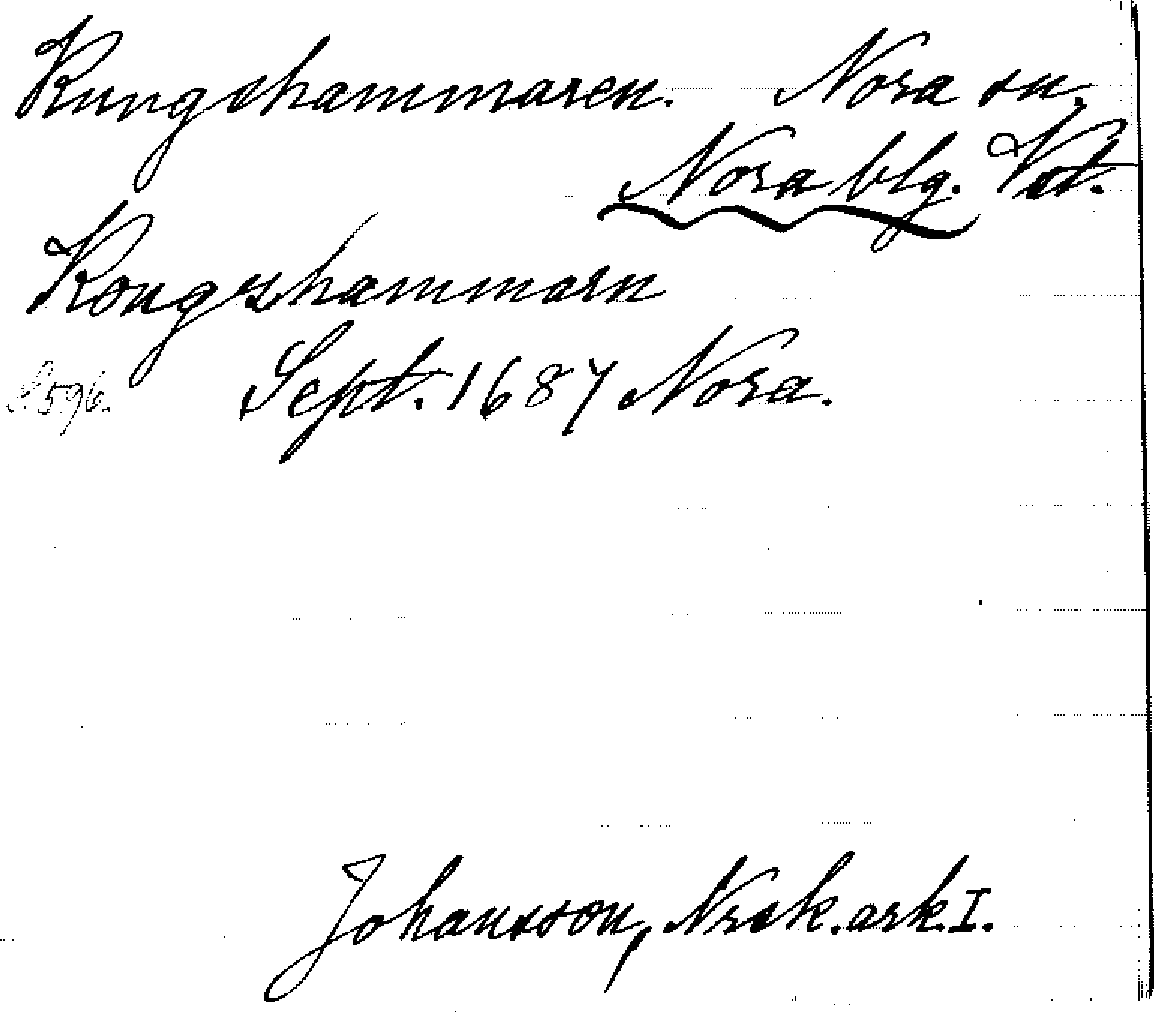 Kungshammaren. Nora sn.
Nora blg. Vst.
Kongshammarn
S. 596. Sept. 1687 Nora.
Johansson, Nrsk. ark. I.